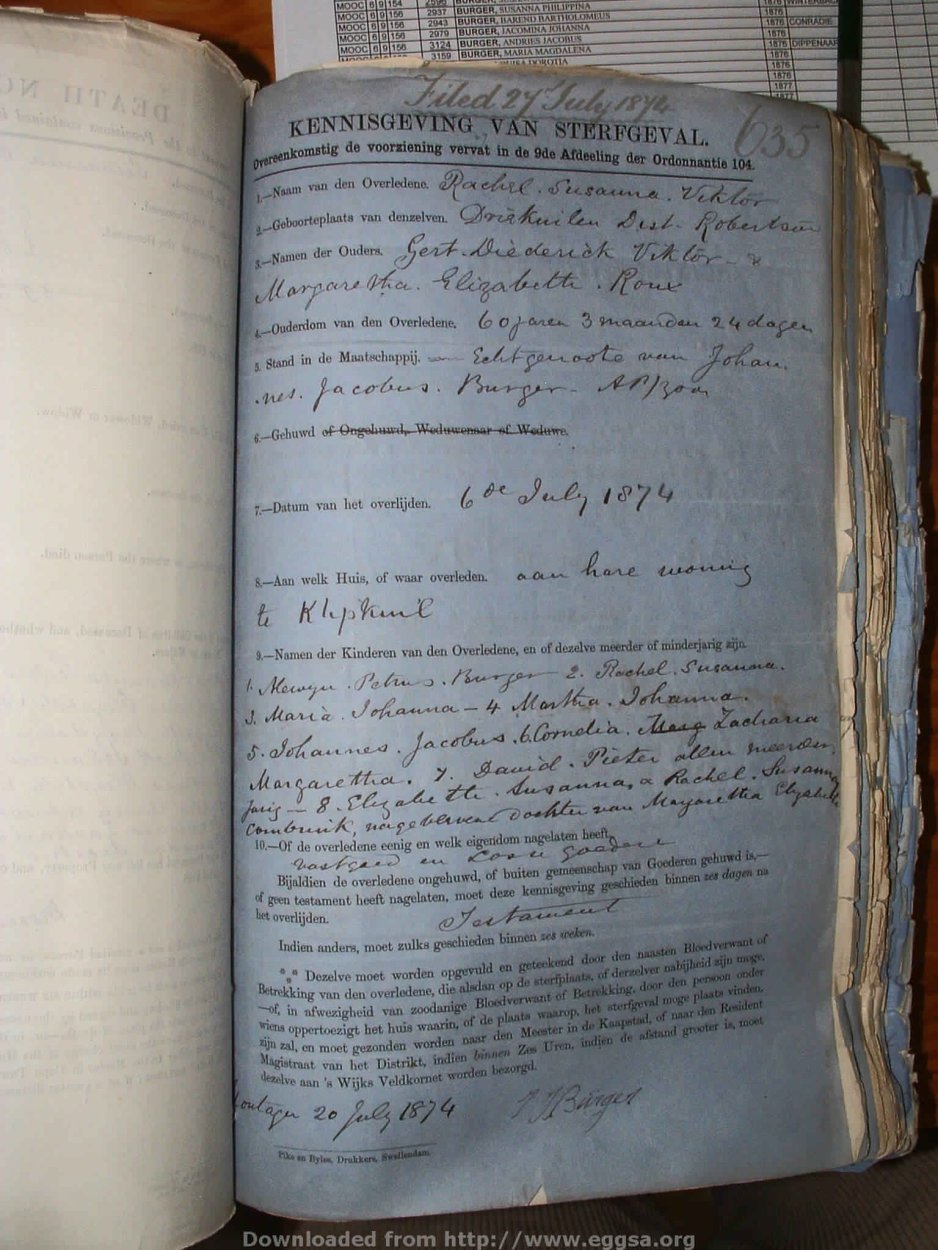 MOOC 6 9 154
MOOC 6 9 156 2937 BURGER, SUSANNA PHILIPPINA 1876
MOOC 6 9 156 2943 BURGER, BAREND BARTHOLOMEUS 1876 CONRADIE
MOOC 6 9 156 2979 BURGER, JACOMINA JOHANNA 1876
MOOC 6 9 156 3124 BURGER, ANDRIES JACOBUS 1876 DIPPENAAR
3159 BURGER, MARIA MAGDALENA 1876
1876
1877
Filed 27 July 1874
635
KENNISGEVING VAN STERFGEVAL.
Overeenkomstig de voorziening vervat in de 9de Afdeeling der Ordonnantie 104.
1.—Naam van den Overledene. Rachel. Susanna. Viktor
2.—Geboorteplaats van denzelven. Driekuilen Dist. Robertson
3.—Namen der Ouders. Gert. Diederick Viktor &
Margaretha. Elizabeth. Roux
4.—Ouderdom van den Overledene. 60 jaren 3 maanden 24 dagen
5. Stand in de Maatschappij. Echtgenoote van Johan.
.nes. Jacobus. Burger. APzoon
6.—Gehuwd of Ongehuwd, Weduwenaar of Weduwe.
7.—Datum van het overlijden. 6de July 1874
8.—Aan welk Huis, of waar overleden. aan hare woning
te Klipkuil
9.—Namen der Kinderen van den Overledene, en of dezelve meerder of minderjarig zijn.
1. Petrus. Burger 2. Rachel. Susanna.
3. Maria. Johanna — 4 Martha. Johanna.
5. Johannes. Jacobus. 6. Cornelia. Zacharia
Margaretha. 7. David. Pieter allen meerder
jarig — 8. Elizabeth. Susanna, a Rachel. Susanna
Combrink, nagebleven dochter van Margaretha Elizabeth
10.—Of de overledene eenig en welk eigendom nagelaten heeft.
vastgoed en Losse goedere
Bijaldien de overledene ongehuwd, of buiten gemeenschap van Goederen gehuwd is,—
of geen testament heeft nagelaten, moet deze kennisgeving geschieden binnen zes dagen na
het overlijden. Testament
Indien anders, moet zulks geschieden binnen zes weken.
*** Dezelve moet worden opgevuld en geteekend door den naasten Bloedverwant of
Betrekking van den overledene, die alsdan op de sterfplaats, of derzelver nabijheid zijn moge,
—of, in afwezigheid van zoodanige Bloedverwant of Betrekking, door den persoon onder
wiens oppertoezigt het huis waarin, of de plaats waarop, het sterfgeval moge plaats vinden,
zijn zal, en moet gezonden worden naar den Meester in de Kaapstad, of naar den Resident
Magistraat van het Distrikt, indien binnen Zes Uren, indien de afstand grooter is, moet
dezelve aan 's Wijks Veldkornet worden bezorgd.
20 July 1874 J J Burger
Pike en Byles, Drukkers, Swellendam.
Downloaded from http://www.eggsa.org